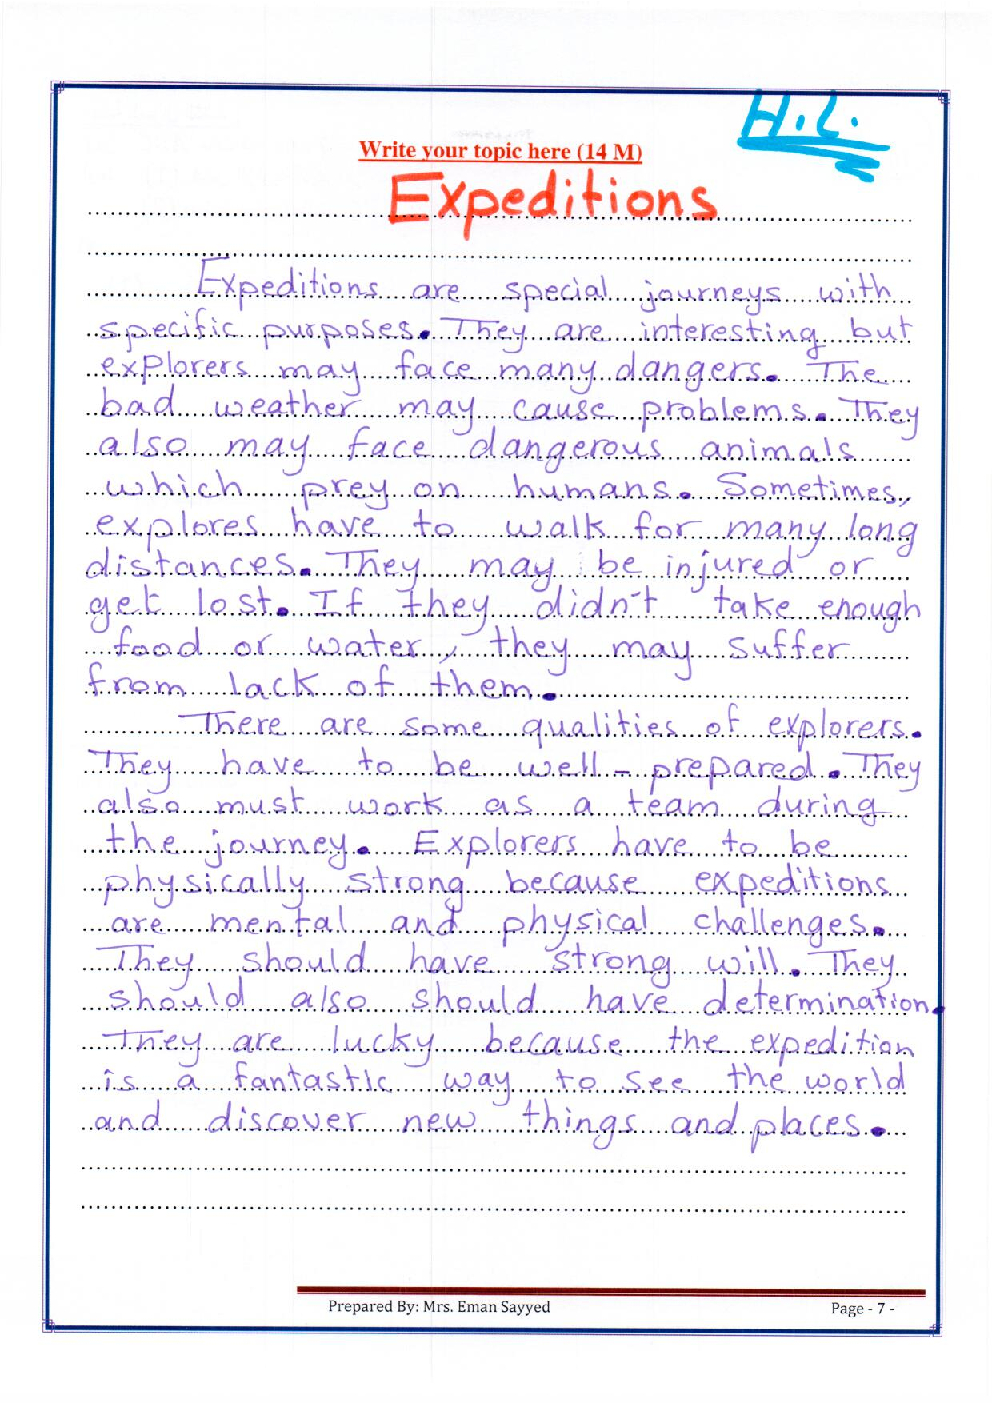 H.L.
Write your topic here (14 M)
Expeditions
Expeditions are special journeys with
specific purposes. They are interesting but
explorers may face many dangers. The
bad weather may cause problems. They
also may face dangerous animals
which prey on humans. Sometimes,
explores have to walk for many long
distances. They may be injured or
get lost. If they didn't take enough
food or water, they may suffer
from lack of them.
There are some qualities of explorers.
They have to be well-prepared. They
also must work as a team during
the journey. Explorers have to be
physically strong because expeditions
are mental and physical challenges.
They should have strong will. They
should also should have determination.
They are lucky because the expedition
is a fantastic way to see the world
and discover new things and places.
Prepared By: Mrs. Eman Sayyed
Page - 7 -